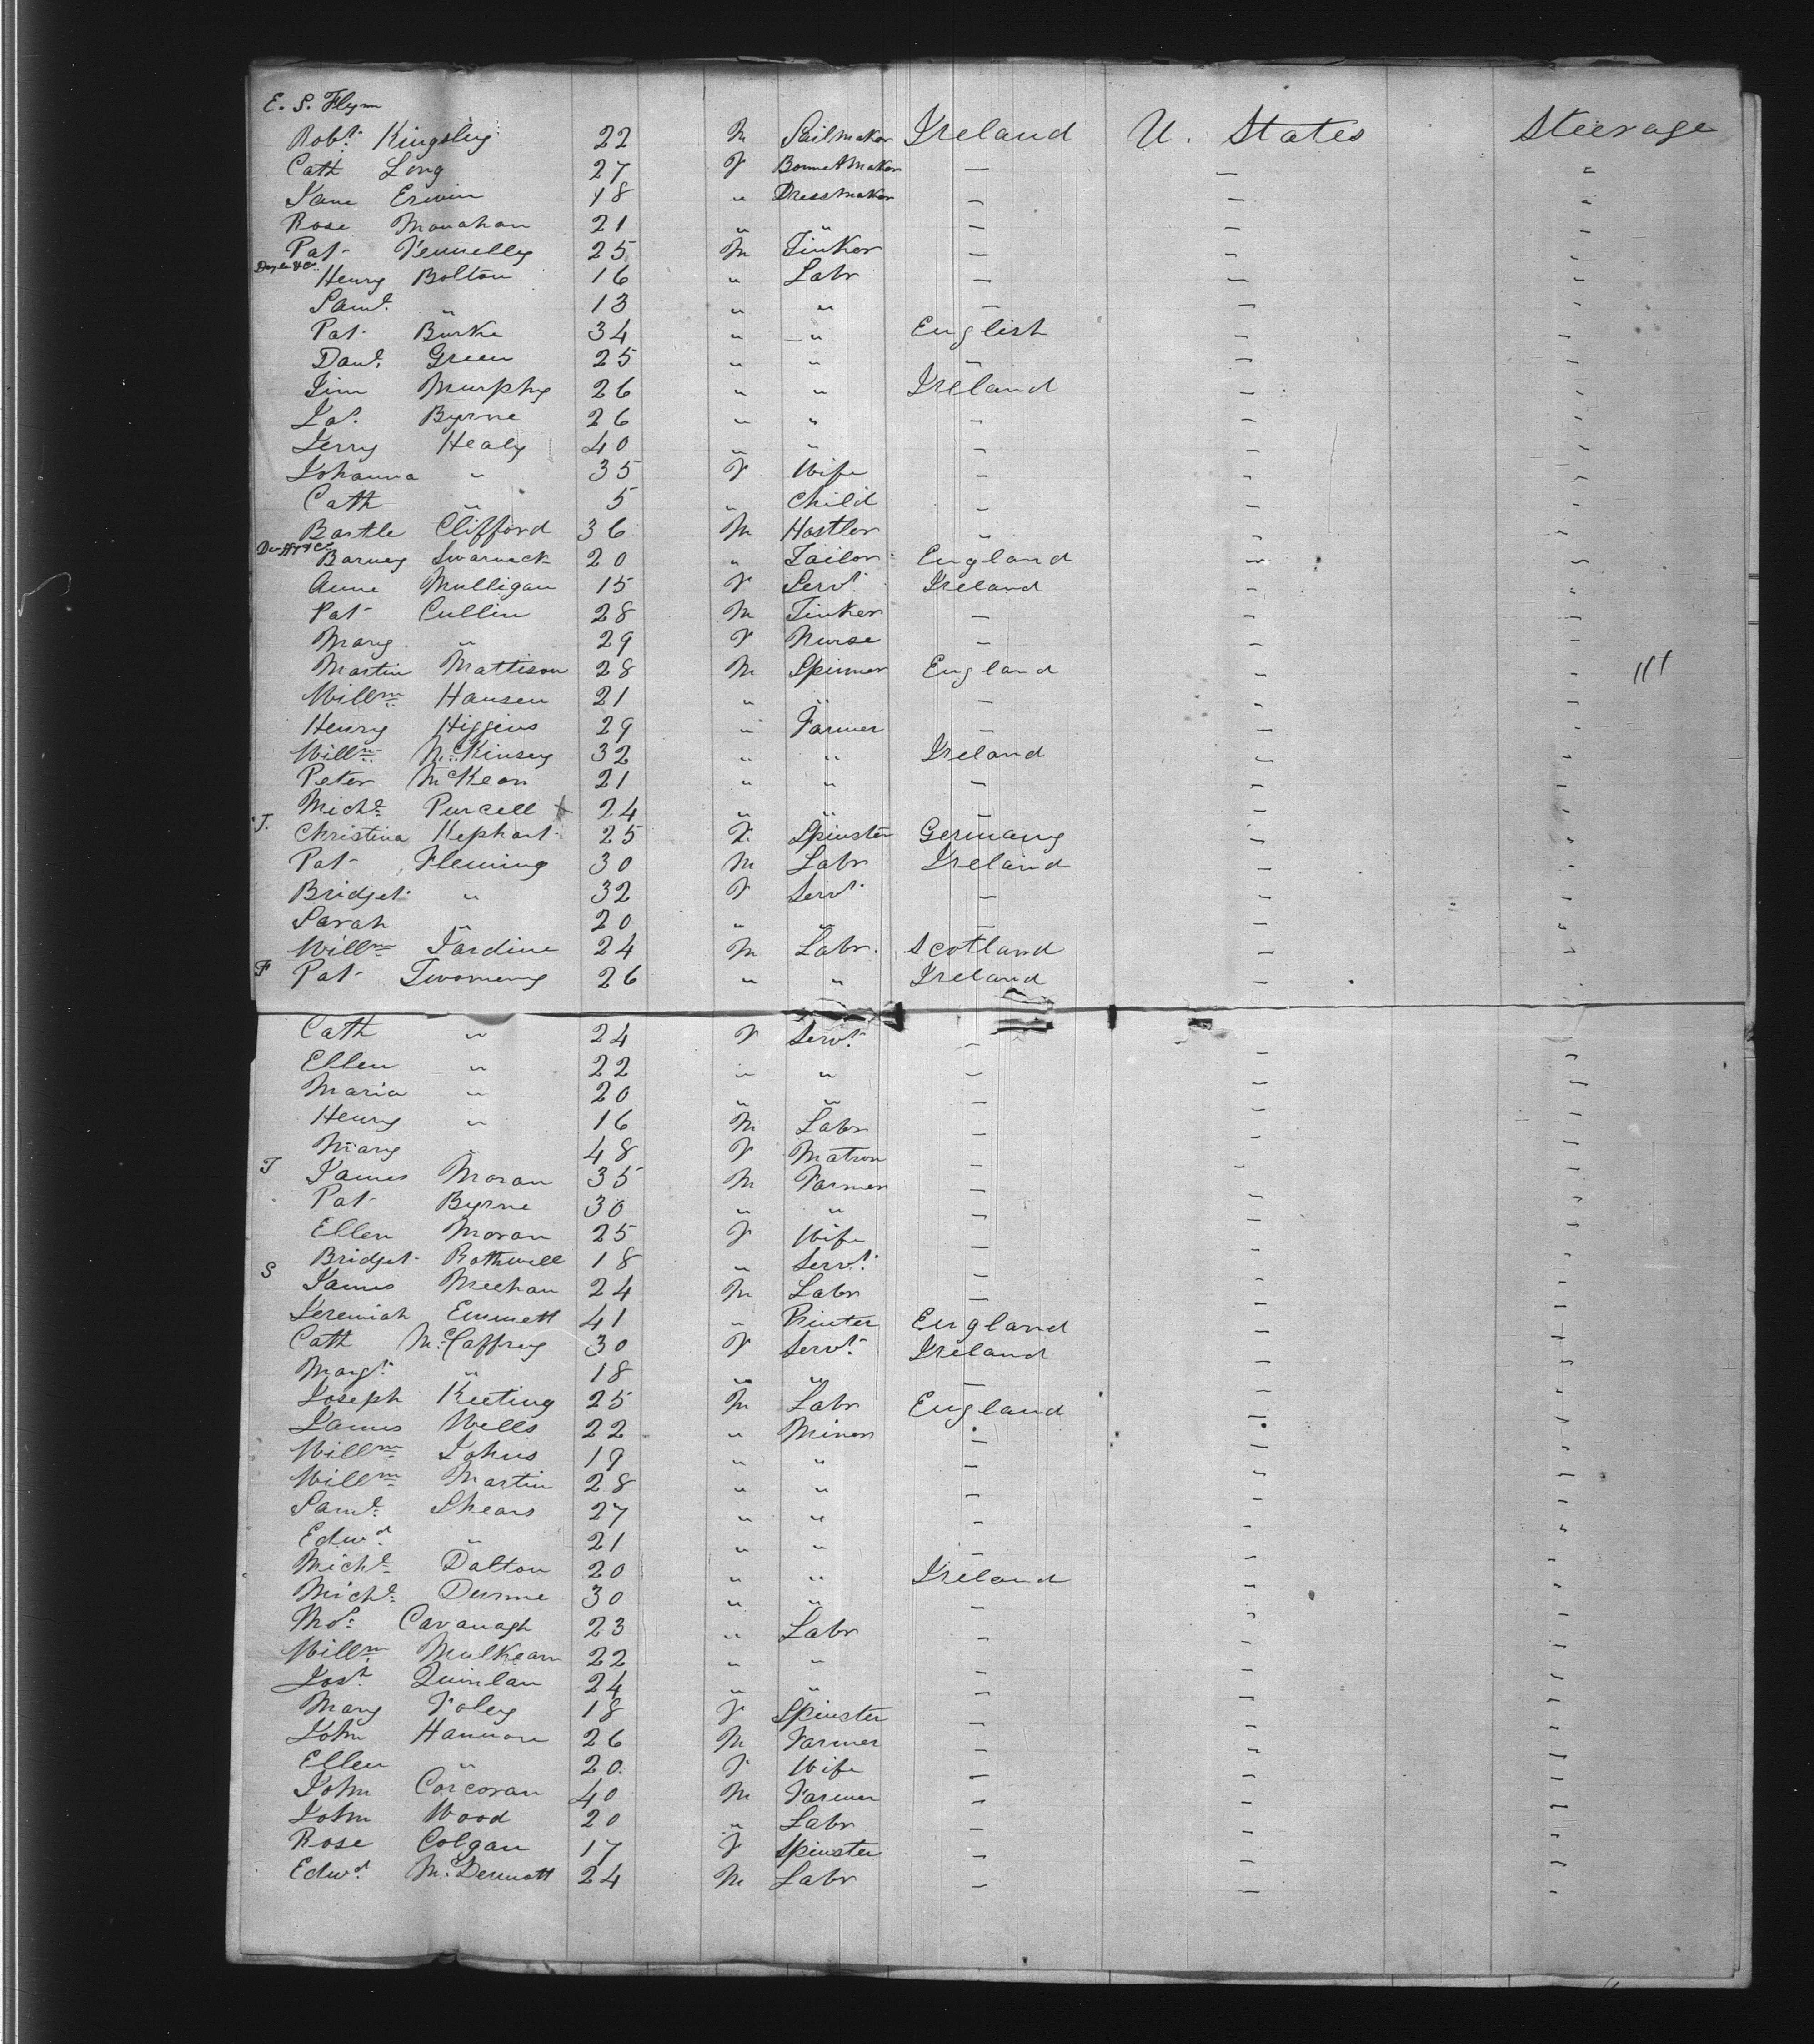 E. S. Flynn
Robt. Kingsley 22 M Sailmaker Ireland U. States Steerage
Cath Long 27 F Bonnet Maker — — "
Jane Erwin 18 " Dressmaker — — "
Rose Monahan 21 " " — — —
Pat Fennelly 25 M Tinker — — —
Doyle & Co.
Henry Bolton 16 " Labr — — —
Saml. " 13 " " — — —
Pat Burke 34 " " English — —
Danl. Green 25 " " — — —
Jim Murphy 26 " " Ireland — —
Jas. Byrne 26 " " — — —
Jerry Healy 40 " " — — —
Johanna " 35 F Wife — — —
Cath " 5 " Child — — —
Bartle Clifford 36 M Hostler " — —
Duffy & Co.
Barney Swarneck 20 " Tailor England — —
Anne Mulligan 15 F Servt. Ireland — —
Pat Cullin 28 M Tinker — — —
Mary " 29 F Nurse — — —
Martin Mattison 28 M Spinner England — —
Willm Hansen 21 " " — — —
Henry Higgins 29 " Farmer — — —
Willm McKinsey 32 " " Ireland — —
Peter McKeon 21 " " — — —
Michl Purcell x 24 " " — — —
T. Christina Kephart 25 F. Spinster Germany — —
Pat Fleming 30 M Labr Ireland — —
Bridget " 32 F Servt — — —
Sarah " 20 " " — — —
Willm Jardine 24 M Labr. Scotland — —
F Pat Twomeny 26 " " Ireland — —
Cath " 24 F Servt. — — —
Ellen " 22 " " — — —
Maria " 20 " " — — —
Henry " 16 M Labr — — —
Mary " 48 F Matron — — —
T James Moran 35 M Farmer — — —
Pat Byrne 30 " " — — —
Ellen Moran 25 F Wife — — —
Bridget Rothwell 18 " Servt. — — —
S James Meehan 24 M Labr — — —
Jeremiah Emmett 41 " Printer England — —
Cath McCaffrey 30 F Servt. Ireland — —
Margt. " 18 " " — — —
Joseph Keeting 25 M Labr England — —
James Wells 22 " Miner — — —
Willm Johns 19 " " — — —
Willm Martin 28 " " — — —
Saml. Shears 27 " " — — —
Edwd. " 21 " " — — —
Michl Dalton 20 " " Ireland — —
Michl. Dunne 30 " " — — —
Mos. Cavanagh 23 " Labr — — —
Willm Mulkearn 22 " " — — —
Josh. Quinlan 24 " " — — —
Mary Foley 18 F Spinster — — —
John Hannon 26 M Farmer — — —
Ellen " 20. F Wife — — —
John Corcoran 40 M Farmer — — —
John Wood 20 " Labr — — —
Rose Colgan 17 F Spinster — — —
Edwd. McDermott 24 M Labr — — —